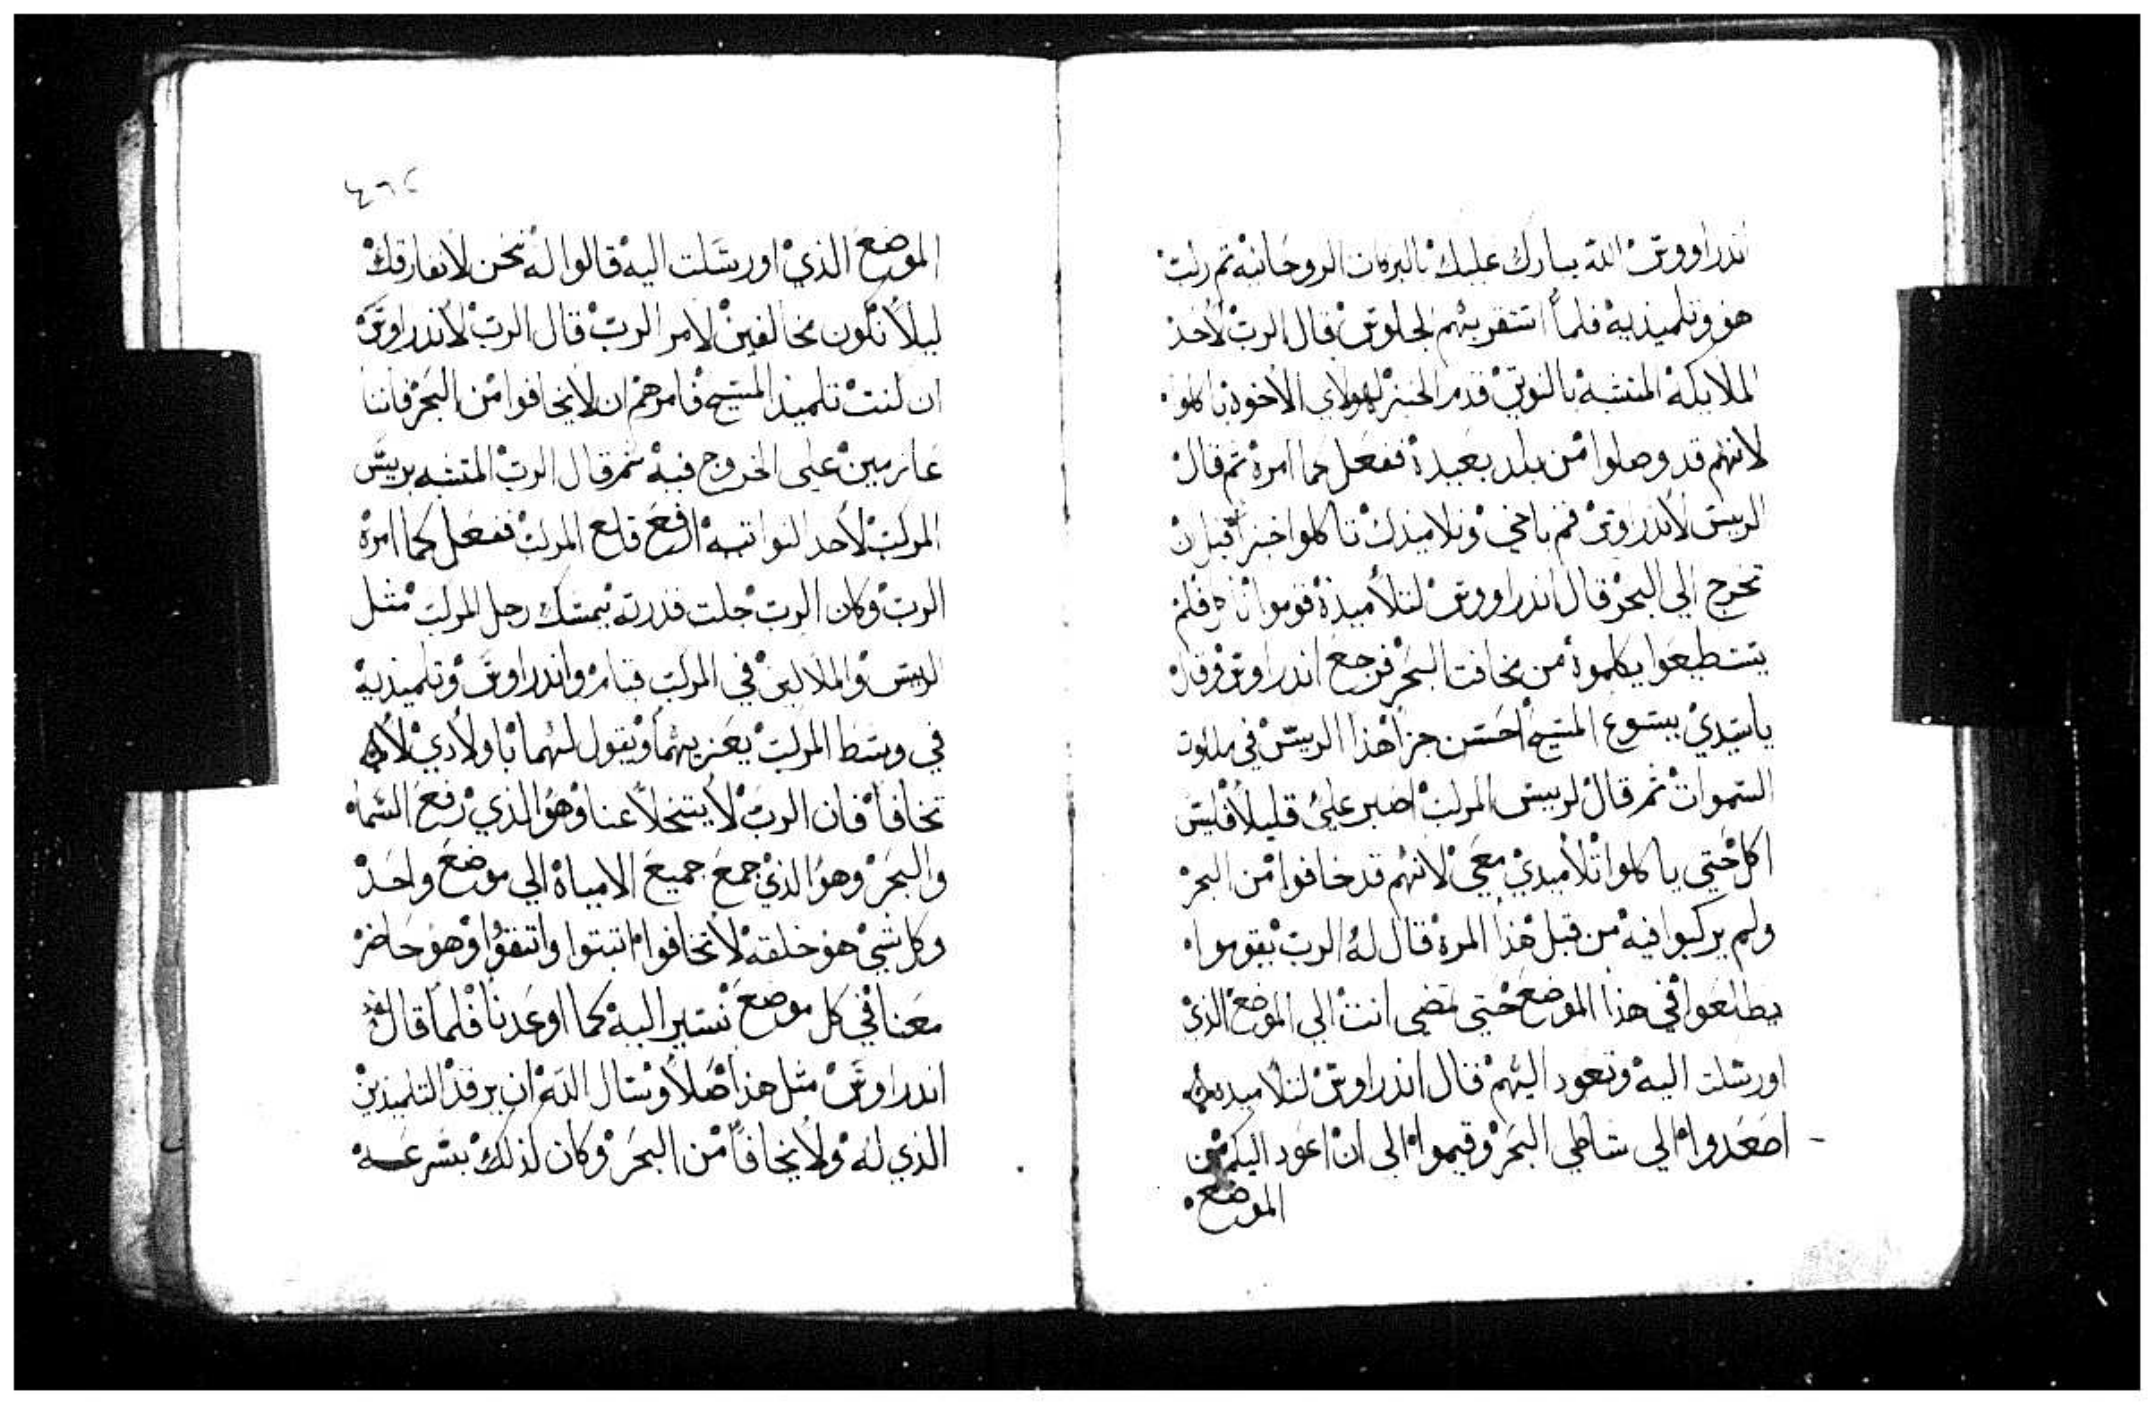 اندراووس الله يبارك عليك بالبركات الروحانيه ثم ركب
هو وتلميذيه فلما استقر بهم الجلوس قال الرب لأحد
الملايكة المتشبه بالنوتي قدم الخبز لهولاي الأخوة ياكلو
لانهم قد وصلوا من بلد بعيدة ففعل كما امره ثم قال
الريس لأندراوس قم ياخي وتلاميذك تاكلوا خبزا قبل ان
تخرج الي البحر قال اندراووس لتلاميذة قوموا ناكل فلم
يستطيعوا يكلموة من مخافت البحر فرجع اندراوس وقال
ياسيدي يسوع المسيح احسن جزا هذا الريس في ملكوت
السموات ثم قال لرييس المركب اصبر علي قليلا فليس
اكل حتي ياكلوا تلاميدي معي لانهم قد خافوا من البحر
ولم يركبوا فيه من قبل هذا المرة قال له الرب يقوموا
يطلعوا في هذا الموضع حتي تمضي انت الي الموضع الذي
اورسلت اليه وتعود اليهم قال اندراوس لتلاميده
اصعدوا الي شاطي البحر وقيموا الي ان اعود اليكم من
الموضع
٤٦٢
الموضع الذي اورسلت اليه قالوا له نحن لانفارقك
ليلا نكون مخالفين لامر الرب قال الرب لأندراوس
ان كنت تلميذ المسيح فامرهم ان لايخافوا من البحر فاننا
عازمين علي الخروج فيه ثم قال الرب المتشبه بريس
المركب لأحد النواتيه ارفع قلع المركب ففعل كما امرة
الرب وكان الرب جلت قدرته يمسك رجل المركب مثل
الريس والملاكين في المركب قيام واندراوس وتلميذيه
في وسط المركب يعزيهما ويقول لهما ياولادي لا
تخافا فان الرب لا يتخلا عنا وهو الذي رفع السما
والبحر وهو الذي جمع جميع الامياة الي موضع واحد
وكل شي هو خلقه لا تخافوا اتبتوا واتتقوا وهو حاضر
معنا في كل موضع نسير اليه كما اوعدنا فلما قال
اندراوس مثل هذا صلا وسال الله ان يرقد التلميذين
الذي له ولا يخافا من البحر وكان لذلك بسرعه